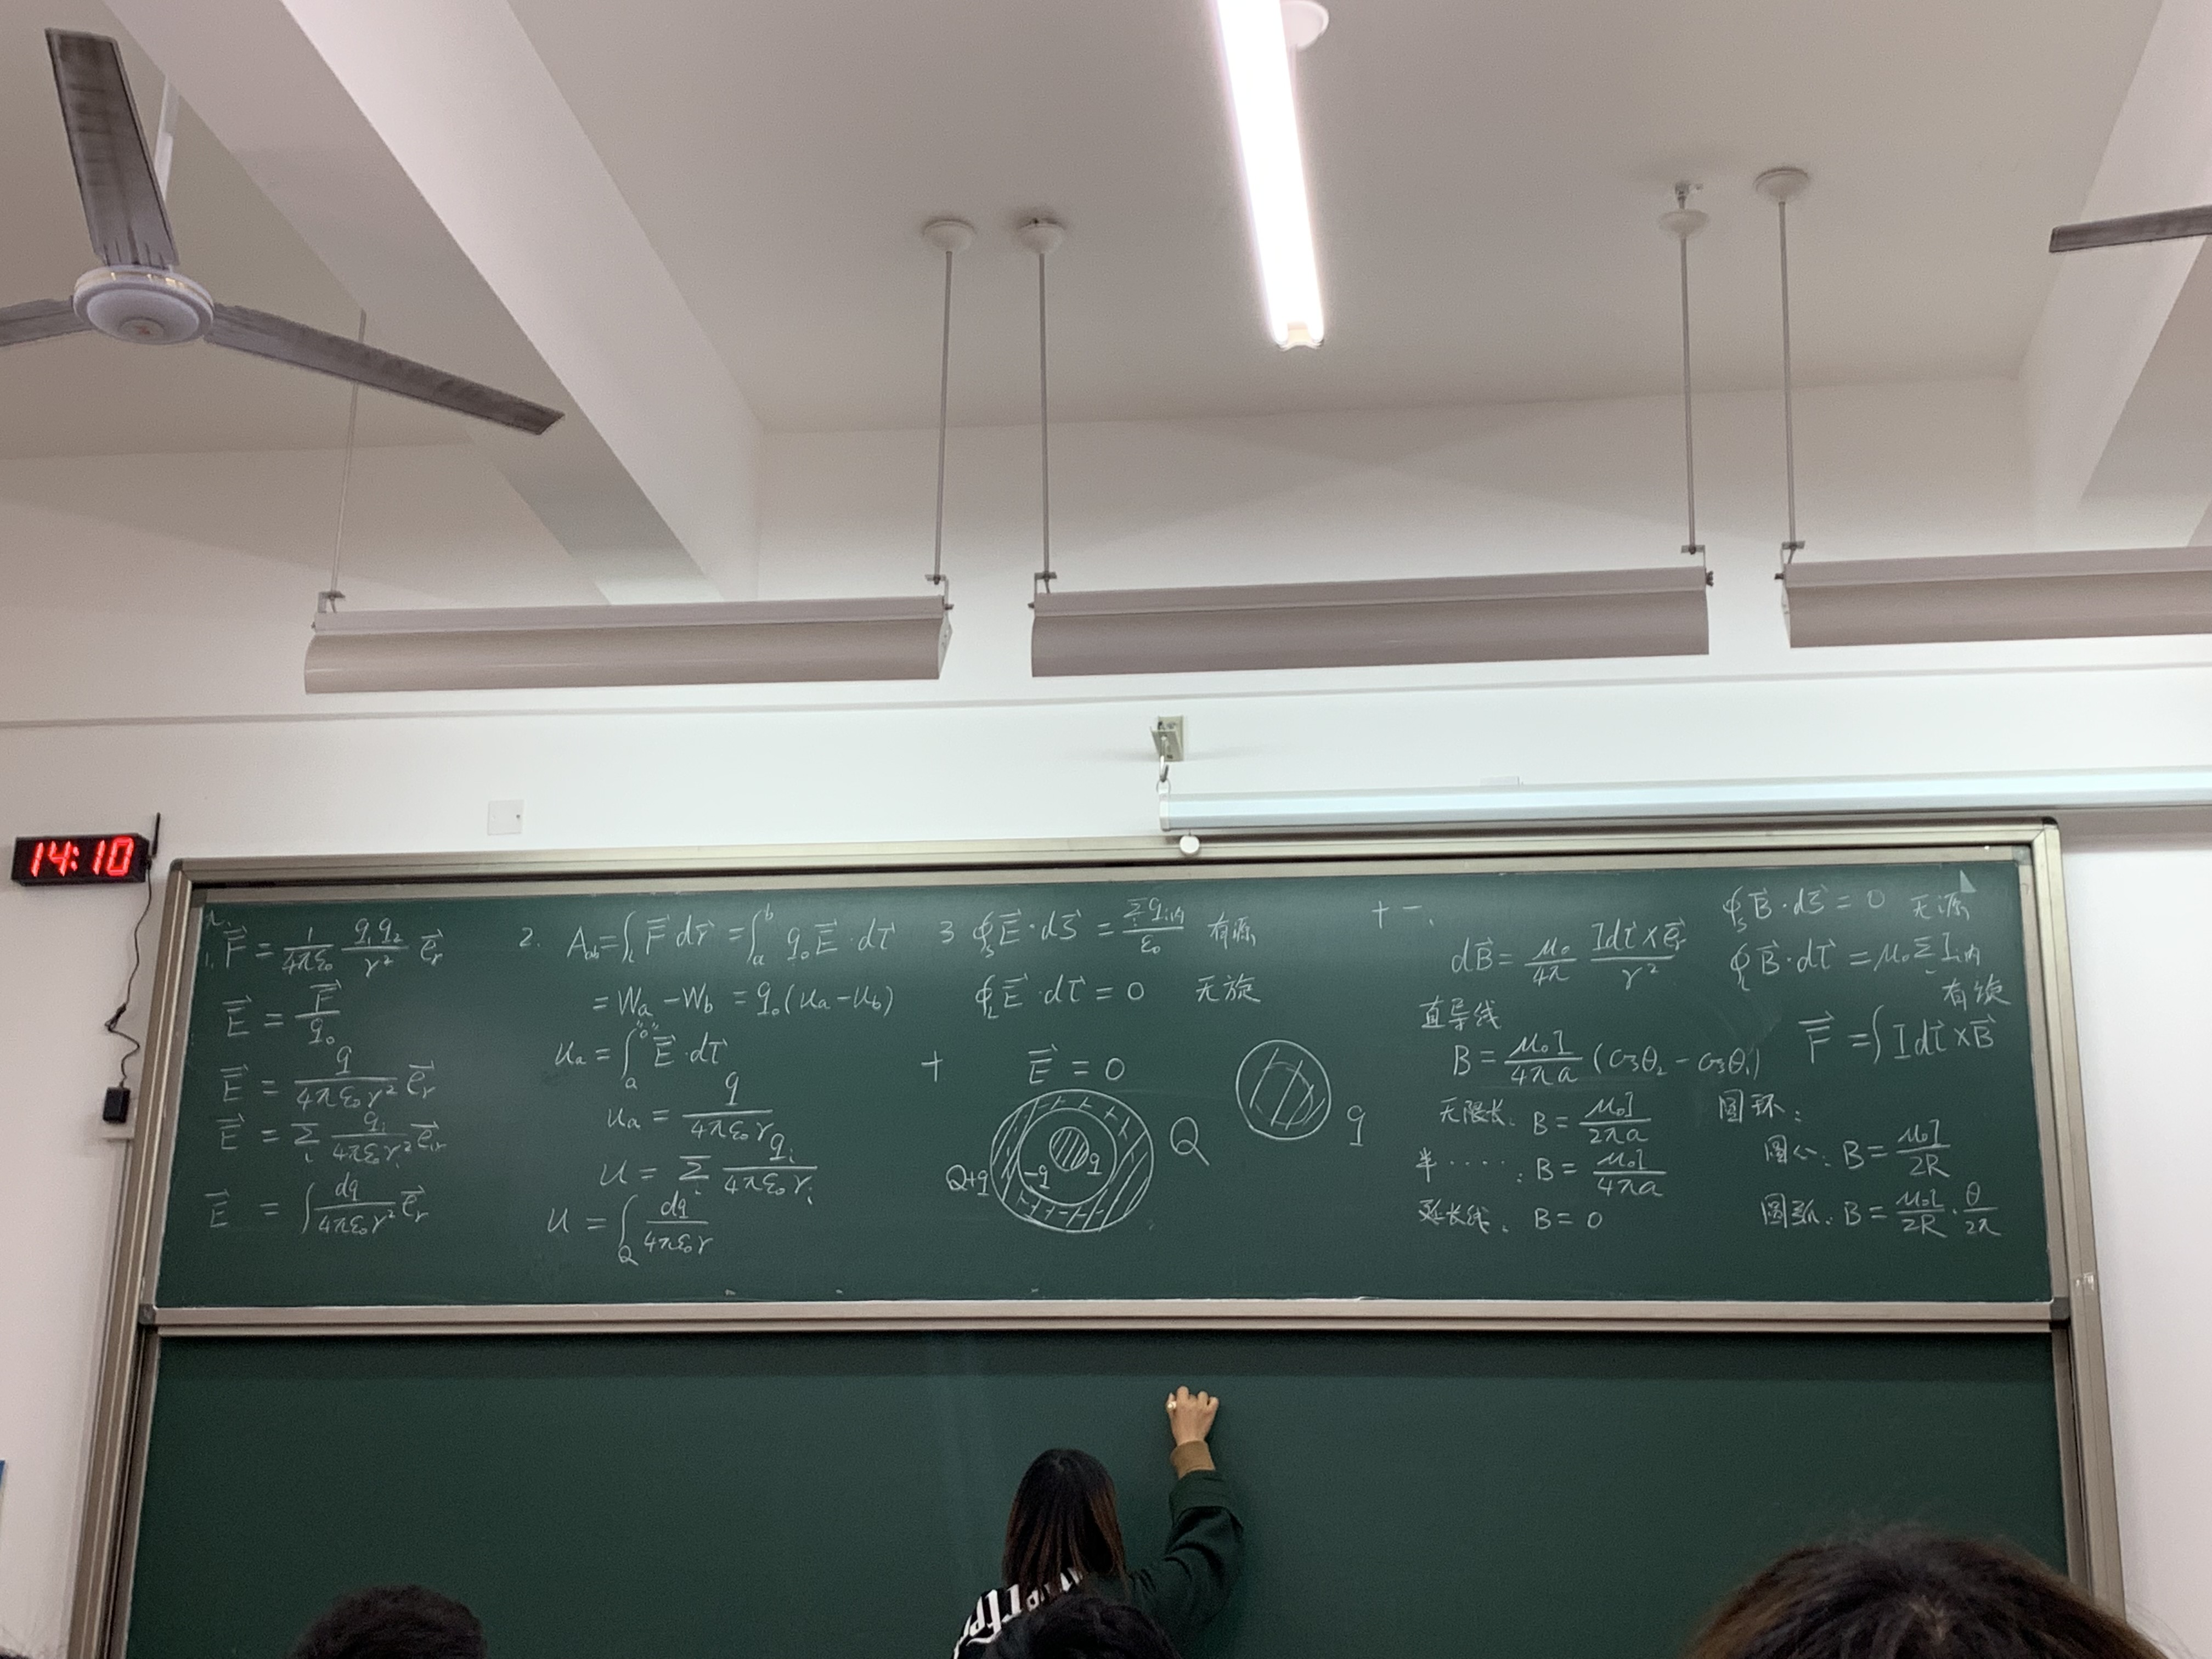 14:10
九.
1. F⃗ = 1/4πε₀ q₁q₂/r² e⃗r
E⃗ = F⃗/q₀
E⃗ = q/4πε₀r² e⃗r
E⃗ = Σᵢ qᵢ/4πε₀rᵢ² e⃗ᵢr
E⃗ = ∫ dq/4πε₀r² e⃗r
2. Aab = ∫L F⃗ dr⃗ = ∫ₐᵇ q₀E⃗·dl⃗
= Wa − Wb = q₀(ua − ub)
ua = ∫ₐ"⁰" E⃗·dl⃗
ua = q/4πε₀r
u = Σᵢ qᵢ/4πε₀rᵢ
u = ∫Q dq/4πε₀r
3 ∮s E⃗·dS⃗ = Σqi内/ε₀ 有源
∮L E⃗·dl⃗ = 0 无旋
十 E⃗ = 0
Q+q −q q Q
q
十一.
dB⃗ = μ₀/4π Idl⃗×e⃗r/r²
直导线
B = μ₀I/4πa (cosθ₂ − cosθ₁)
无限长: B = μ₀I/2πa
半····: B = μ₀I/4πa
延长线: B = 0
∮s B⃗·dS⃗ = 0 无源
∮L B⃗·dl⃗ = μ₀ΣIi内
有旋
F⃗ = ∫Idl⃗×B⃗
圆环:
圆心: B = μ₀I/2R
圆弧: B = μ₀I/2R·θ/2π